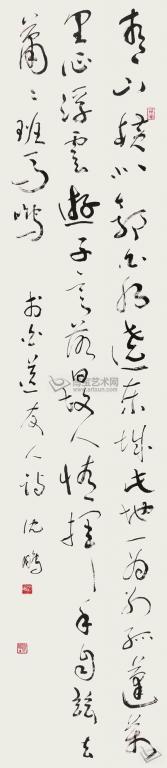 青山横北郭白水遶东城此地一为别孤蓬萬
里征浮雲遊子意落日故人情揮手自兹去
蕭〻班马鸣
李白送友人诗 沈鹏
博宝艺术网
artxun.com